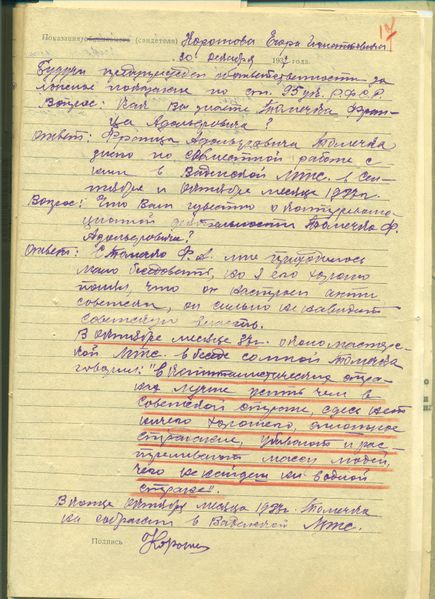 14
Показания обвиняемого (свидетеля) Коротова Егора Игнатьевича
20 декабря 1937 года.
Будучи предупрежден ответственности за
ложные показания по ст. 95 ук. Р.С.Ф.С.Р.
Вопрос: Как Вы знаете Томечка Фран-
ца Адольфовича?
Ответ: Франца Адольфовича Томечка
знаю по совместной работе с
ним в МТС. в сен-
тябре и октябре месяце 1937г.
Вопрос: Что Вам известно о контрреволю-
ционной деятельности Томечка Ф.
Адольфовича?
Ответ: С Томечка Ф.А. мне приходилось
мало беседовать, но я его хорошо
понял, что он настроен анти
советски, он сильно ненавидит
советскую власть.
В октябре месяце 37г. около мастерс-
кой МТС. в беседе со мной Томечка
говорил: "В капиталистических стра-
нах лучше жить чем в
Советской стране, здесь нет
ничего хорошего, сплошное
страдание, убивают и рас-
стреливают массы людей,
чего не найдем ни в одной
стране".
В конце октября месяца 1937г. Томечка
на собрании в МТС.
Подпись Корот